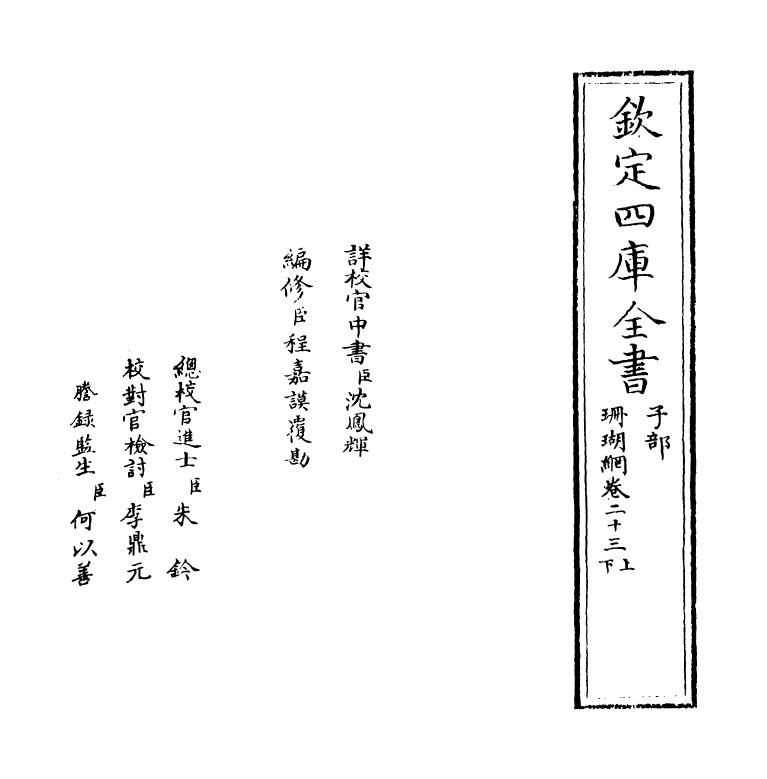 欽定四庫全書
子部
珊瑚網卷二十三上下
詳校官中書臣沈鳳輝
編修臣程嘉謨覆勘
總校官進士臣朱鈐
校對官檢討臣李鼎元
謄錄監生臣何以善